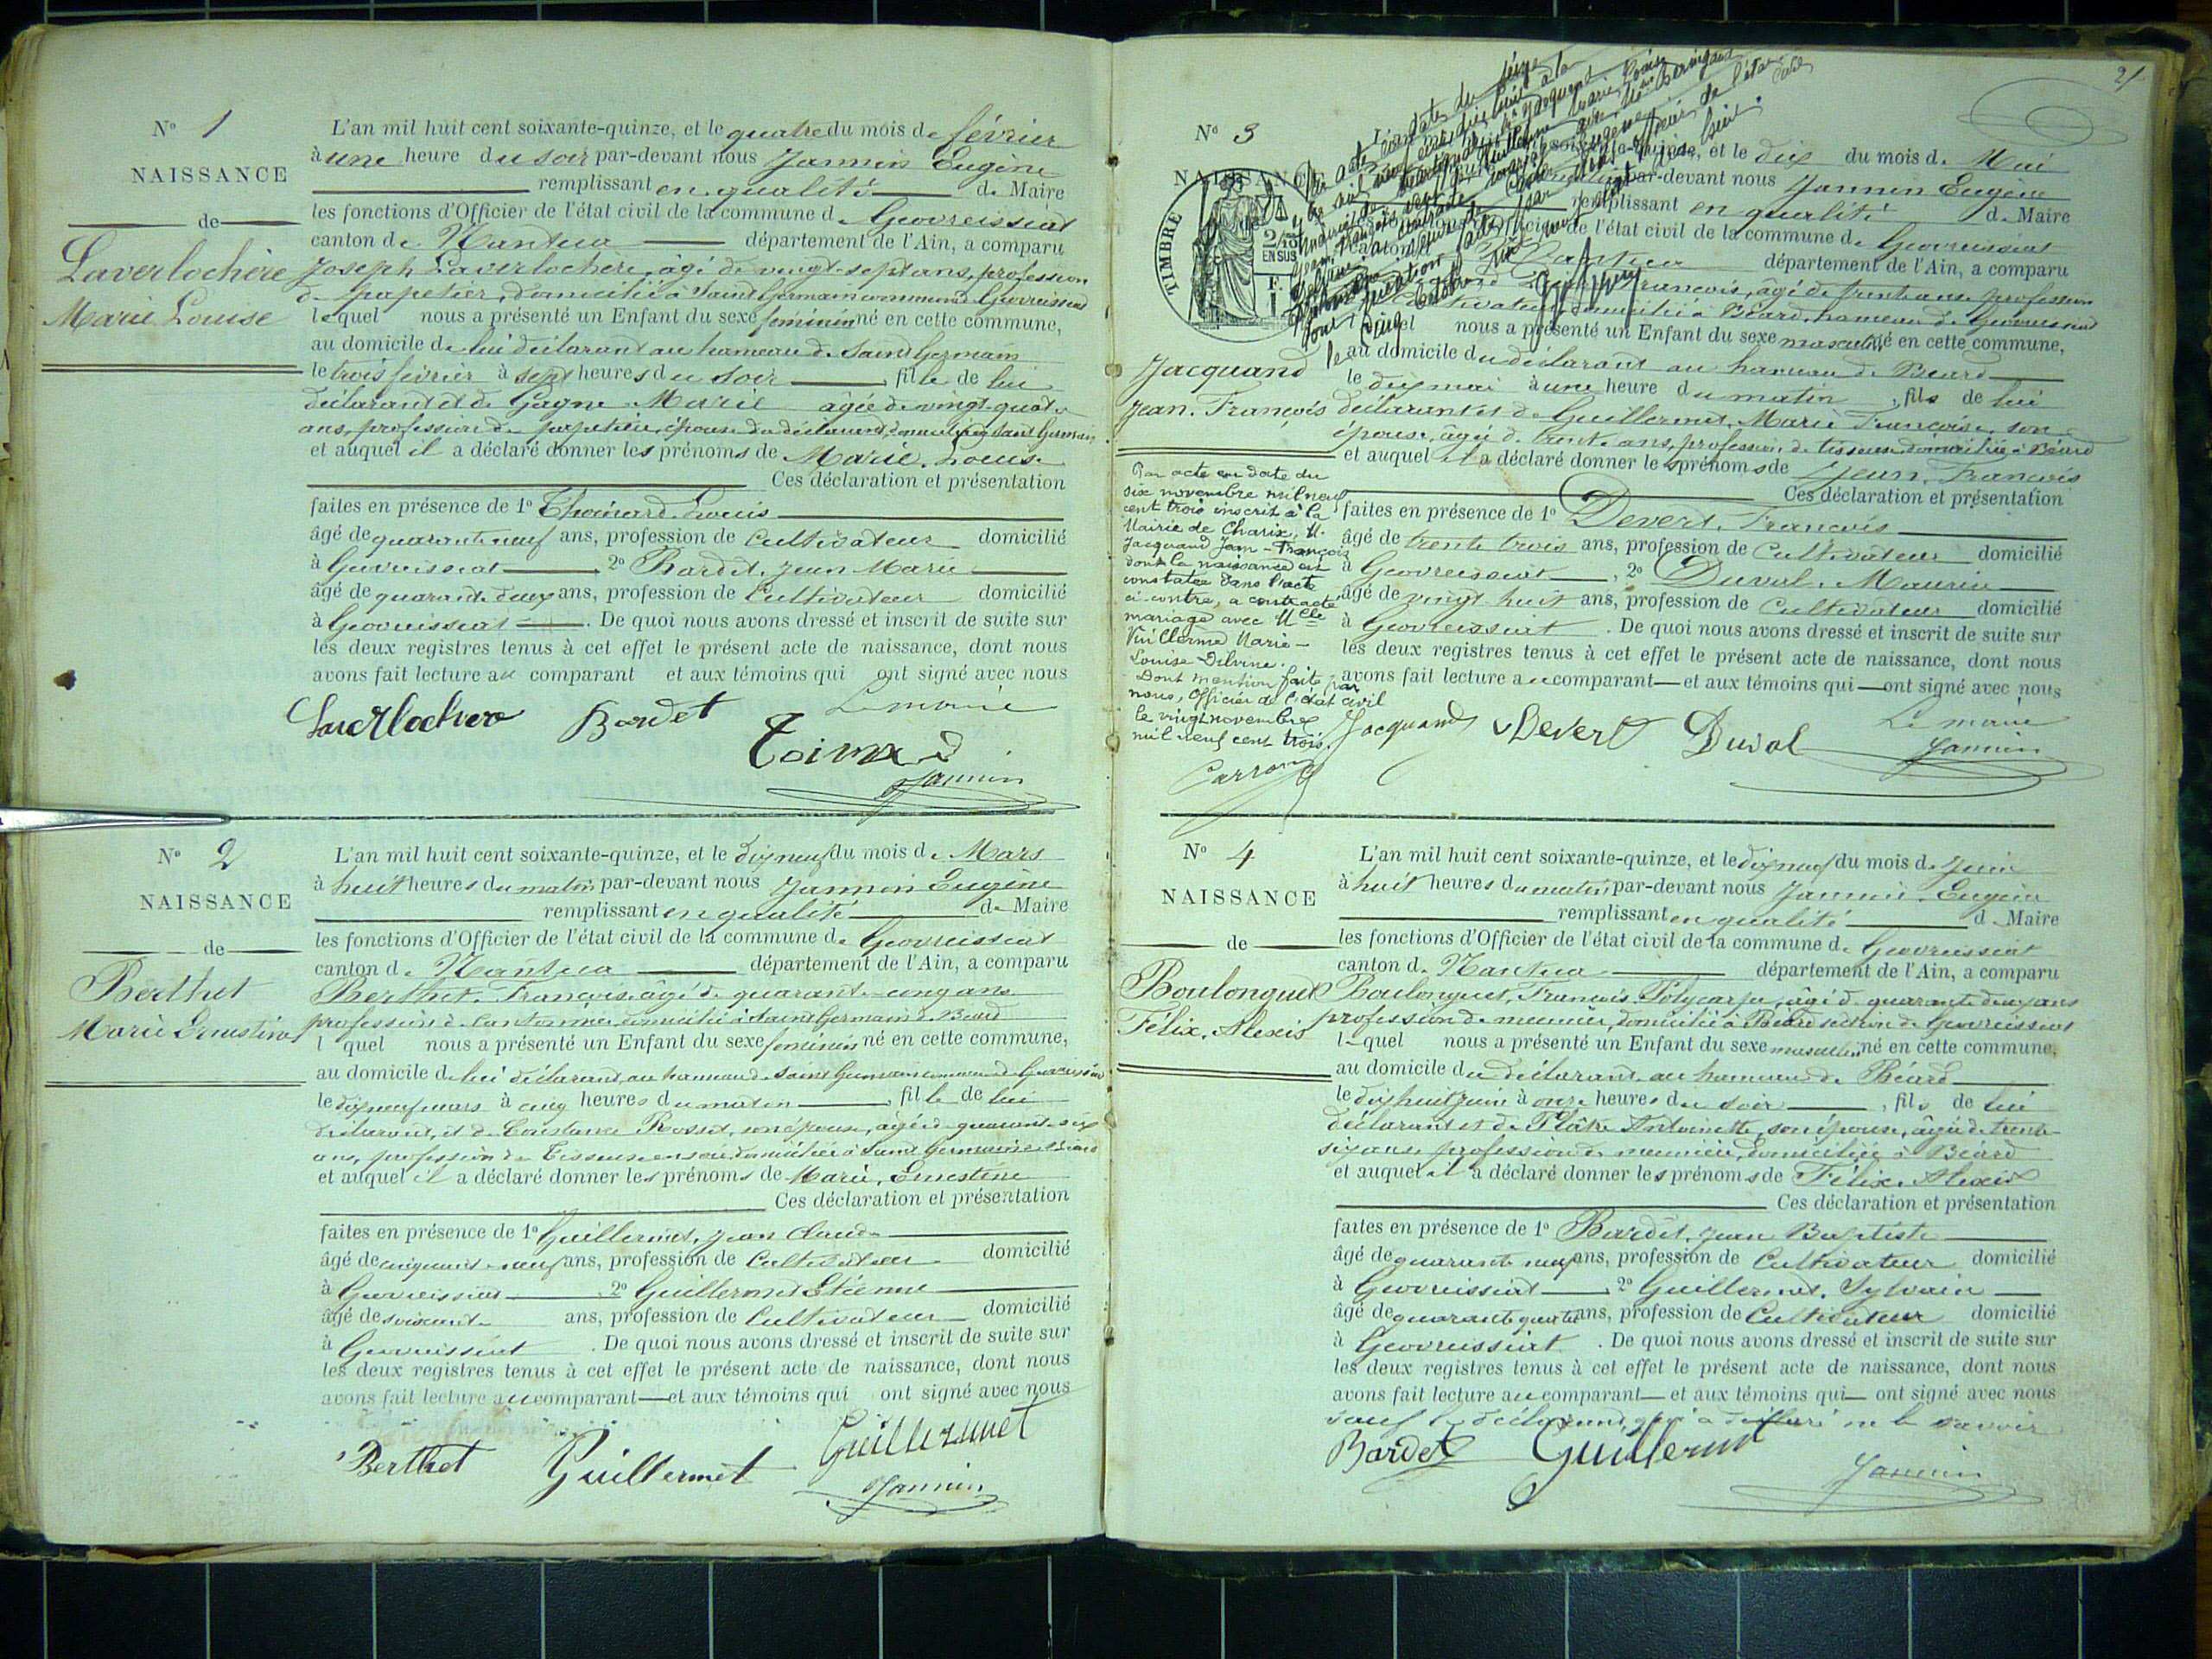 N° 1
NAISSANCE
de
Laverlochère
Marie Louise
L'an mil huit cent soixante-quinze, et le quatre du mois de février
à une heure du soir par-devant nous Jannin Eugène
remplissant en qualité de Maire
les fonctions d'Officier de l'état civil de la commune de Géovreissiat
canton de Nantua département de l'Ain, a comparu
Joseph Laverlochère, âgé de vingt-sept ans, profession
de papetier, domicilié à Saint Germain commune de Géovreissiat
lequel nous a présenté un Enfant du sexe féminin né en cette commune,
au domicile de lui déclarant au hameau de Saint Germain
le trois février à sept heures du soir, fille de lui
déclarant et de Gagne Marie âgée de vingt-quatre
ans, profession de papetière, épouse du déclarant, domiciliée à Saint Germain
et auquel il a déclaré donner les prénoms de Marie Louise
Ces déclaration et présentation
faites en présence de 1° Thoinard Louis
âgé de quarante neuf ans, profession de Cultivateur domicilié
à Géovreissiat 2° Bardet, Jean Marie
âgé de quarante deux ans, profession de Cultivateur domicilié
à Géovreissiat. De quoi nous avons dressé et inscrit de suite sur
les deux registres tenus à cet effet le présent acte de naissance, dont nous
avons fait lecture au comparant et aux témoins qui ont signé avec nous
Laverlochere Bardet Le maire
Toinard
Jannin
N° 2
NAISSANCE
de
Berthet
Marie Ernestine
L'an mil huit cent soixante-quinze, et le dix neuf du mois de Mars
à huit heures du matin par-devant nous Jannin Eugène
remplissant en qualité de Maire
les fonctions d'Officier de l'état civil de la commune de Géovreissiat
canton de Nantua département de l'Ain, a comparu
Berthet, François âgé de quarante-cinq ans
profession de cantonnier domicilié à Saint Germain de Béard
l quel nous a présenté un Enfant du sexe féminin né en cette commune,
au domicile de lui déclarant, au hameau de Saint Germain commune de Géovreissiat
le dix neuf mars à cinq heures du matin, fille de lui
déclarant, et de Constance Rosset, son épouse, âgée de quarante six
ans, profession de Tisseuse en soie domiciliée à Saint Germain de Béard
et auquel il a déclaré donner les prénoms de Marie, Ernestine
Ces déclaration et présentation
faites en présence de 1° Guillermet, Jean Claude
âgé de cinquante neuf ans, profession de Cultivateur domicilié
à Géovreissiat 2° Guillermet Etienne
âgé de soixante ans, profession de Cultivateur domicilié
à Géovreissiat. De quoi nous avons dressé et inscrit de suite sur
les deux registres tenus à cet effet le présent acte de naissance, dont nous
avons fait lecture au comparant et aux témoins qui ont signé avec nous
Berthet Guillermet Guillermet
Jannin
21
N° 3
NAISSANCE
TIMBRE
2/10
EN SUS
Jacquand
Jean. François
et le dix du mois de Mai
par-devant nous Jannin Eugène
remplissant en qualité de Maire
de l'état civil de la commune de Géovreissiat
Nantua département de l'Ain, a comparu
François, âgé de trente ans profession
cultivateur, domicilié à Béard, hameau de Géovreissiat
nous a présenté un Enfant du sexe masculin né en cette commune,
au domicile du déclarant au hameau de Béard
le dix mai à une heure du matin, fils de lui
déclarant et de Guillermet, Marie Françoise, son
épouse, âgée de trente ans, profession de tisseuse, domiciliée à Béard
et auquel il a déclaré donner les prénoms de Jean, François
Ces déclaration et présentation
faites en présence de 1° Devert, François
âgé de trente trois ans, profession de Cultivateur domicilié
à Géovreissiat, 2° Duval, Maurice
âgé de vingt huit ans, profession de Cultivateur domicilié
à Géovreissiat. De quoi nous avons dressé et inscrit de suite sur
les deux registres tenus à cet effet le présent acte de naissance, dont nous
avons fait lecture au comparant et aux témoins qui ont signé avec nous
Jacquand Devert Duval Le maire
Jannin
Par acte en date du
six novembre mil neuf
cent trois inscrit à la
Mairie de Charix, M.
Jacquand Jean-François
dont la naissance est
constatée dans l'acte
ci-contre, a contracté
mariage avec Mlle
Vuillerme Marie-
Louise
Dont mention faite par
nous, Officier de l'état civil
le vingt novembre
mil neuf cent trois.
Carron
N° 4
NAISSANCE
de
Boulonguet
Félix, Alexis
L'an mil huit cent soixante-quinze, et le dix neuf du mois de Juin
à huit heures du matin par-devant nous Jannin, Eugène
remplissant en qualité d Maire
les fonctions d'Officier de l'état civil de la commune de Géovreissiat
canton de Nantua département de l'Ain, a comparu
Boulonguet, François Polycarpe, âgé de quarante deux ans
profession de meunier, domicilié à Béard section de Géovreissiat
lequel nous a présenté un Enfant du sexe masculin né en cette commune,
au domicile du déclarant au hameau de Béard
le dix huit juin à onze heures du soir, fils de lui
déclarant et de Plâtre Antoinette, son épouse, âgée de trente
six ans, profession de meunière, domiciliée à Béard
et auquel il a déclaré donner les prénoms de Félix, Alexis
Ces déclaration et présentation
faites en présence de 1° Bardet, Jean Baptiste
âgé de quarante neuf ans, profession de Cultivateur domicilié
à Géovreissiat 2° Guillermet, Sylvain
âgé de quarante quatre ans, profession de Cultivateur domicilié
à Géovreissiat. De quoi nous avons dressé et inscrit de suite sur
les deux registres tenus à cet effet le présent acte de naissance, dont nous
avons fait lecture au comparant et aux témoins qui ont signé avec nous
sauf le déclarant, qui a déclaré ne le savoir
Bardet Guillermet
Jannin